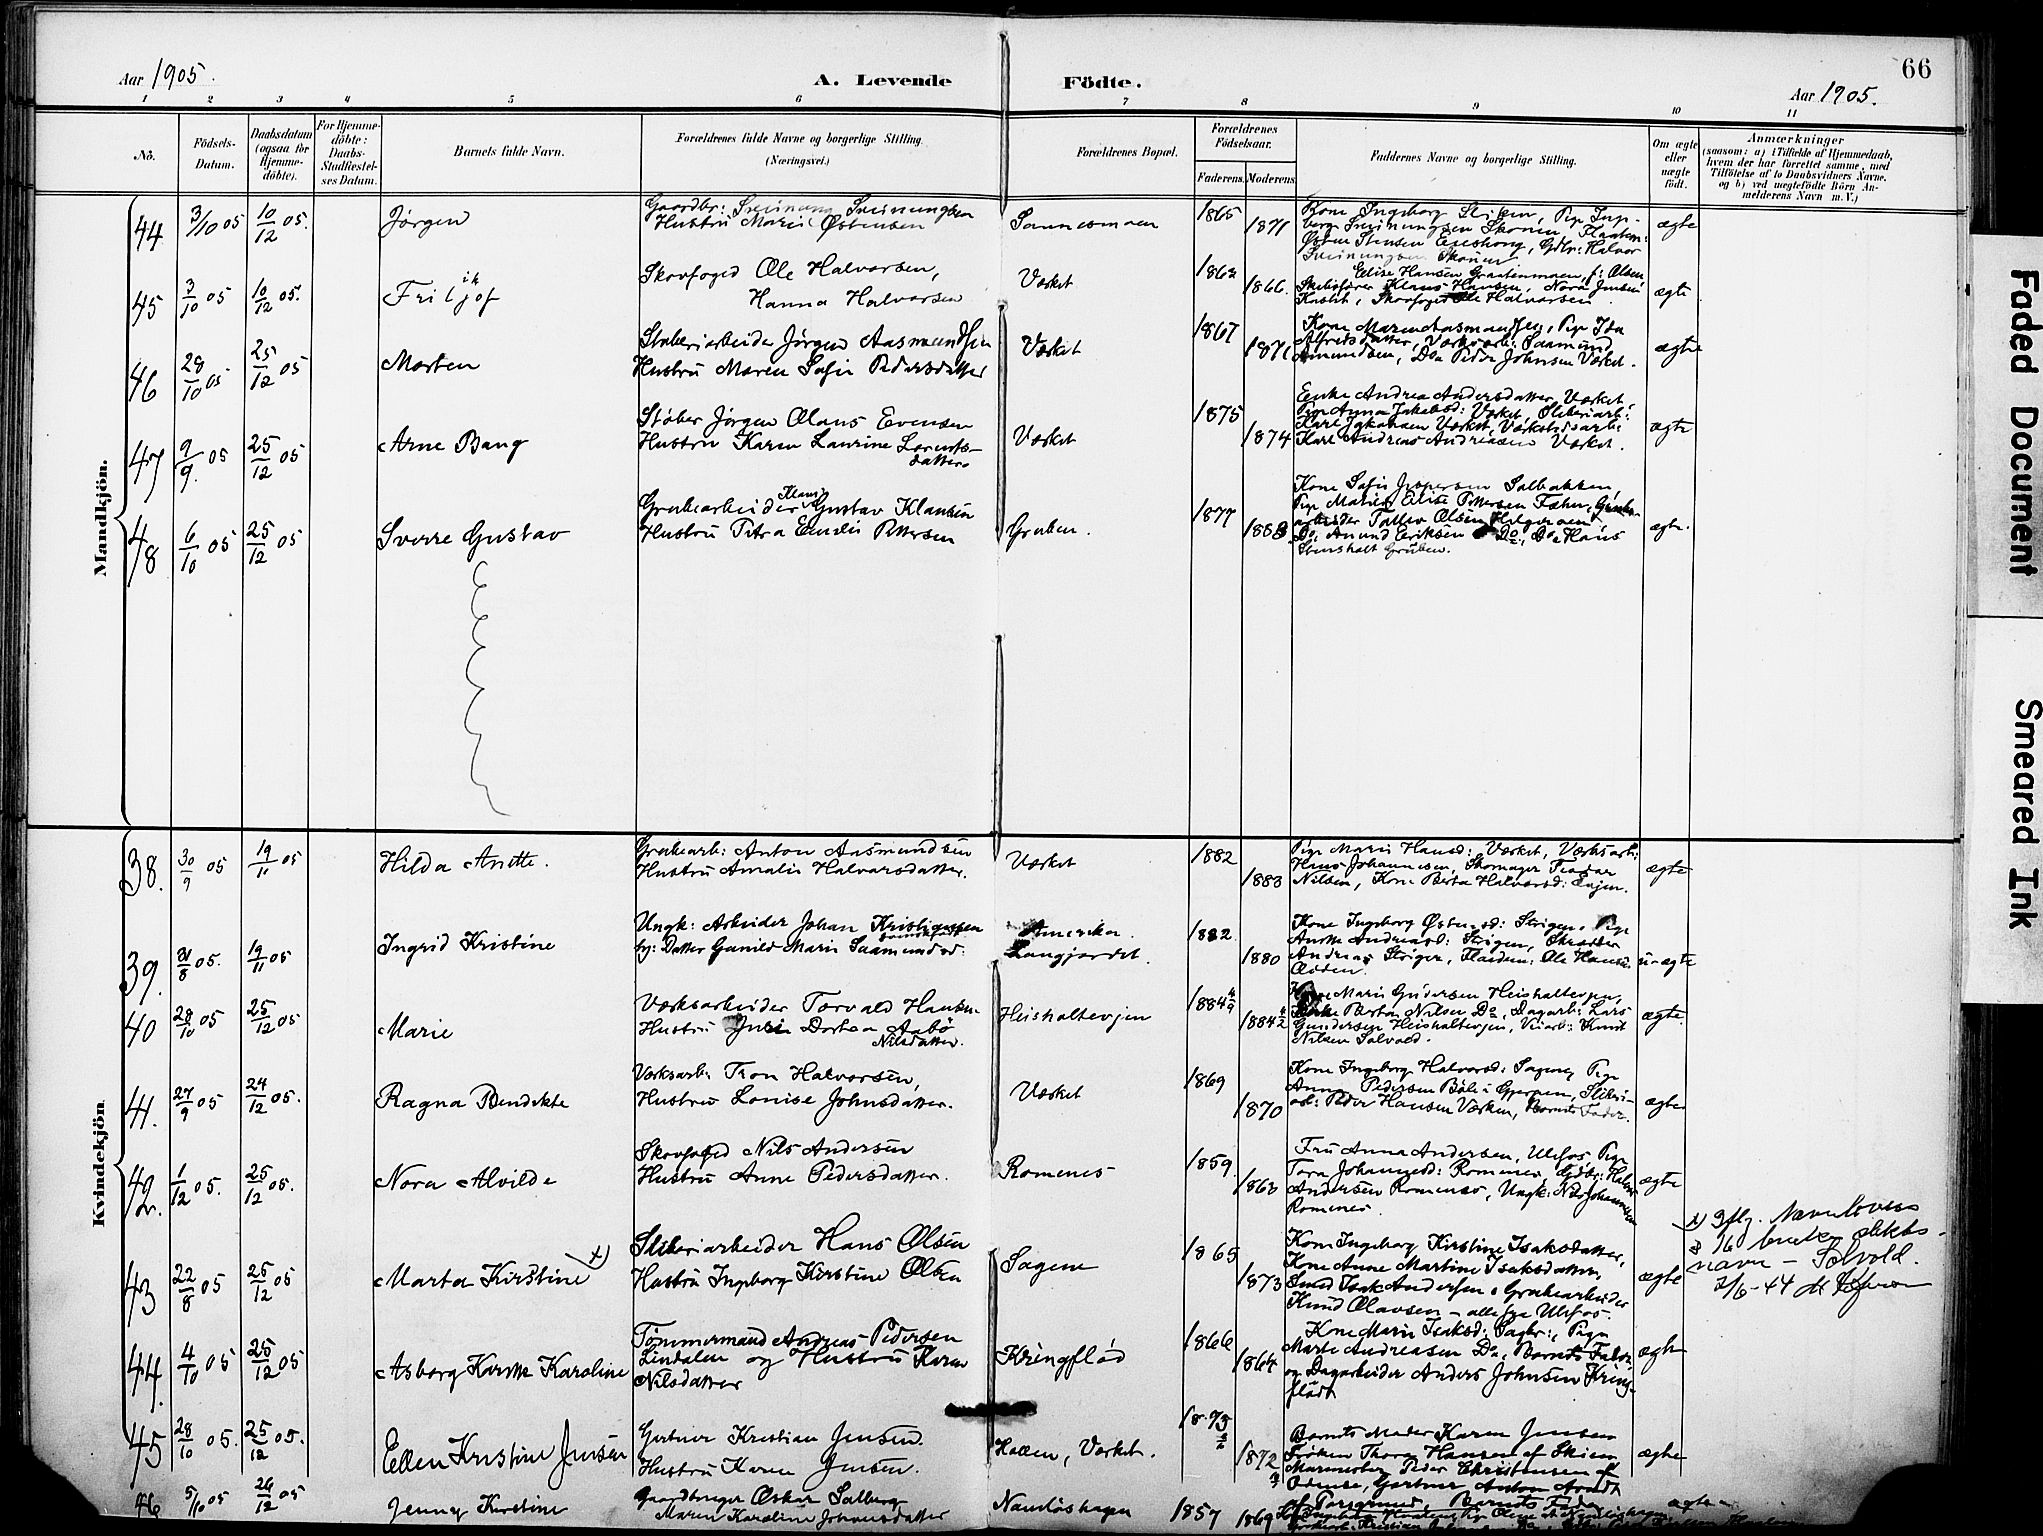 Aar 1905.
A. Levende
Födte.
66
Aar 1905.
1 2 3 4 5 6 7 8 9 10 11
No.
Födsels-Datum.
Daabsdatum (ogsaa for Hjemme-döbte).
For Hjemme-döbte: Daabs-Stadfæstel-ses Datum.
Barnets fulde Navn.
Forældrenes fulde Navne og borgerlige Stilling. (Næringsvei.)
Forældrenes Bopæl.
Forældrenes Födselsaar.
Faderens. Moderens.
Faddernes Navne og borgerlige Stilling.
Om ægte eller uægte födt.
Anmærkninger
(saasom: a) i Tilfælde af Hjemmedaab, hvem der har forrettet samme, med Tilföielse af to Daabsvidners Navne, og b) ved uægtefödte Börn An-melderens Navn m. V.)
Mandkjön.
44 3/10 05 10/12 05. Jørgen
Gaardbr: Sveinung Sveinungsen
Hustru Maria Østensen
Sannesmoen 1865 1871
ægte
45 3/10 05 10/12 05. Fritjof
ik
Skovfoged Ole Halvorsen,
Hanna Halvorsen
Værket 1862 1866.
Skibsfører Klaus Hansen, Nora Jensen
Skovfoged Ole Halvorsen.
ægte
46 28/10 05 25/12 05 Morten
Sliberiarbeider Jørgen Aasmundsen
Hustru Maren Sofie Pedersdatter
Værket 1867 1871
Kone Maren Aasmundsen, Pige Ida
Alfredsdatter, Værksarb: Saamund
Amundsen, Do Peder Johnsen Værket.
ægte
47 9/9 05 25/12 05 Arne Bang
Støber Jørgen Olaus Evensen
Hustru Karen Laurine Lorents-
datter
Værket 1875 1874
Enke Andrea Andersdatter, Værket,
Pige Anna Jakobsd: Værket, Sliberiarb:
Karl Jakobsen Værket, Værkstedsarb:
Karl Andreas Andreassen Værket.
ægte
48 6/10 05 25/12 05 Sverre Gustav
Klaus
Grubearbeider Gustav Klausen
Hustru Petra Emilie Pettersen
Gruben. 1877 1883
Kone Sofie Jespersen Salbakken,
Pige Matilde Elise Pettersen Fæhn, Grube-
arbeider Tallev Olsen Helgeroen,
Do, Amund Eriksen Do, Do Hans
Simshalt Gruben.
ægte.
Kvindekjön
38. 30/9 05 19/11 05 Hilda Anette.
Grubearb: Anton Aasmundsen
Hustru Amalie Halvorsdatter.
Værket 1882 1883
Pige Marie Hansd: Værket, Værksarb:
Hans Johannesen, Skomager Teodor
Nilsen, Kone Berta Halvorsd: Eajen.
ægte
39. 31/8 05. 19/11 05 Ingrid Kristine
Ungk: Arbeider Johan Kristiansen
og: Datter Gunild Marie Saamundsd:
Amerika.
Langjordet. 1882 1880
Kone Ingeborg Østensd: Strigen, Pige
Anette Andreasd: Strigen, Skrædder
Andreas Striger, Ole Hansen
u-ægte
40 28/10 05 25/12 05 Marie
Værksarbeider Torvald Hansen
Hustru Dortea Aabø
Nilsdatter.
Heishaltevjen 1884 4/9 1884 4/2
Kone Marie Gundersen Heishaltevjen,
Berta Nilsen Do, Dagarb: Lars
Gundersen Heishaltevjen, Knut
Nilsen Solvold.
ægte.
41. 27/9 05 24/12 05. Ragna Bendikte
Værksarb: Tron Halvorsen,
Hustru Louise Johnsdatter.
Værket 1869 1870
Kone Ingeborg Halvorsd: Sagene, Pige
Anna Pedersen Bøle i Gjerpen, Sliberi-
arb: Peder Hansen Værken, Barnets Fader.
ægte
42. 1/12 05. 25/12 05. Nora Alvilde
Skovfoged Nils Andersen
Hustru Anne Pedersdatter.
Romenes 1859. 1863
Fru Anna Andersen, Ulefos Pige
Tora Johannesd: Romenes, Gdbr: Halvor
Andersen Romenes, Ungk: Nils Johannesen
Romenes.
ægte
43 22/8 05 25/12 05 Marta Kirstine x)
Sliberiarbeider Hans Olsen
Hustru Ingeborg Kirstine Olsen
Sagene 1865 1873
Kone Ingeborg Kirstine Isaksdatter,
Kone Anne Martine Isaksdatter,
Smed Isak Andersen, Grubearbeider
Knud Olavsen - alle fra Ulefos.
ægte
x) Iflg. Navneloven
§ 16 slekts-
navn - Solvold.
2/6-44
44. 4/10 05 25/12 05 Asborg Karette Karoline
Tømmermand Andreas Pedersen
Lindalen og Hustru Karen
Nilsdatter
Kringflød 1866 1864
Kone Marie Isaksd: Sagbr:, Pige
Marte Andreasen Do, Barnets Fader
og Dagarbeider Anders Johnsen Kring-
flødt
ægte
45 28/10 05. 25/12 05. Ellen Kristine Jensen
Gartner Kristian Jensen.
Hustru Karen Jensen.
Hollen, Værket. 1873 1872
Barnets Moder Karen Jensen
Frøken Thora Hansen af Skien,
Peder Christensen af
Odense, Gartner Anton Arndt
af Porsgrund, Barnets Fader
ægte
46 5/10 05 26/12 05 Jenny Kirstine
Gaardbruger Oskar Solberg
Maren Karoline Johannesdatter
Namløshagen 1857 1869
ægte
Faded Document
Smeared Ink